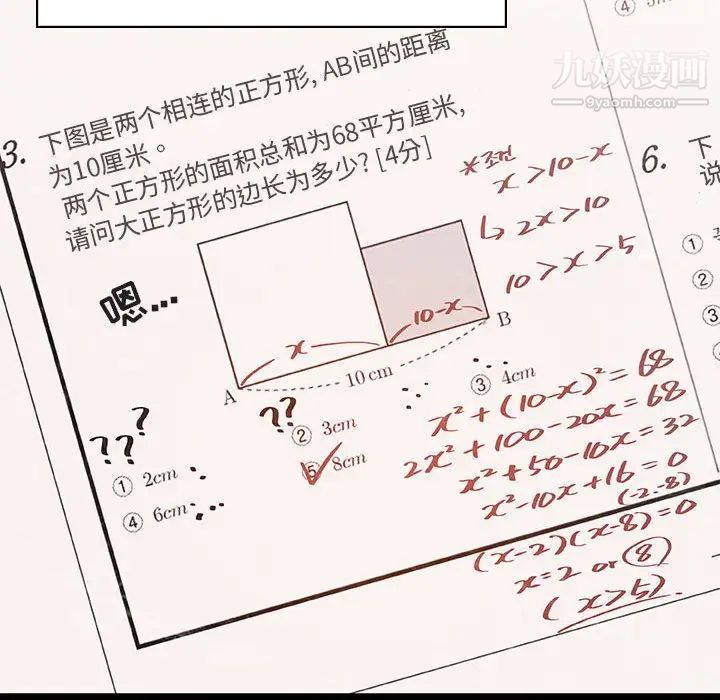 九妖漫画
9yaomh.com
④
3.
下图是两个相连的正方形, AB间的距离
为10厘米。
两个正方形的面积总和为68平方厘米,
请问大正方形的边长为多少? [4分]
嗯...
x
10-x
A
B
10 cm
??
?
??
① 2cm
② 3cm
③ 4cm
④ 6cm
⑤ 8cm
*조건
x > 10-x
↳ 2x > 10
10 > x > 5
x² + (10-x)² = 68
2x² + 100 - 20x = 68
x² + 50 - 10x = 32
x² - 10x + 16 = 0
(-2, -8)
(x-2)(x-8) = 0
x = 2 or ⑧
(x>5)
6.
下
说
①
②
③